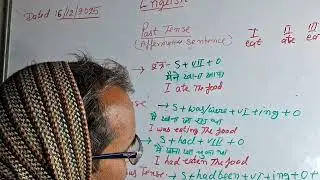 English
Dated 16/12/2025
Past Tense
(Affirmative Sentence)
I II III
eat ate
→ S + VII + O
मैंने खाना खाया
I ate the food
→ S + was/were + VI + ing + O
I was eating the food
→ S + had + VIII + O
I had eaten the food
Tense → S + had been + VI + ing + O